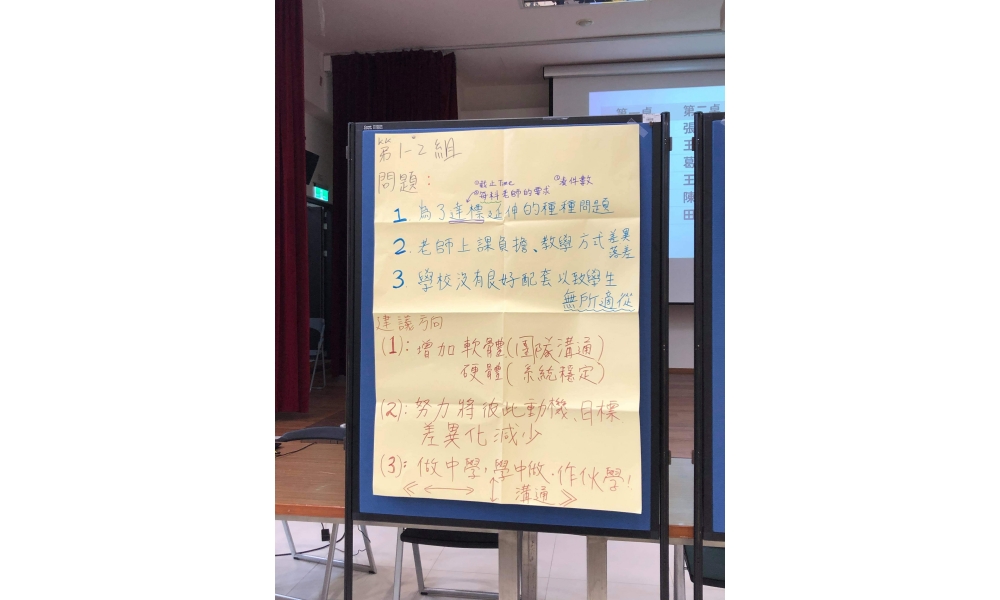 第1-2組
問題:
②截止Time ①支件數
③每科老師的要求
1 為了達標延伸的種種問題
2. 老師上課負擔、教學方式差異
落差
3. 學校沒有良好配套以致學生
無所適從
建議方向
(1): 增加軟體(團隊溝通)
硬體(系統穩定)
(2): 努力將彼此動機、目標
差異化減少
(3): 做中學,學中做.作伙學!
溝通
第一桌 第二桌
張
王
葛
王
陳
田